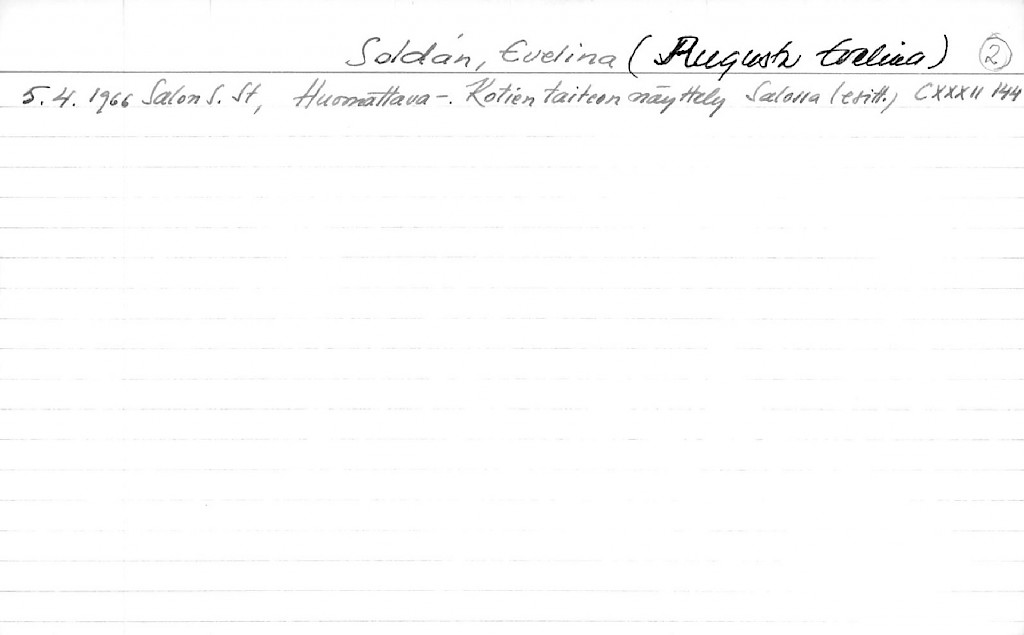 Soldán, Evelina (Augusta Evelina) 2
5.4. 1966 Salon S. St, Huomattava -. Kotien taiteen näyttely Salossa (esitt.) CXXXII 144